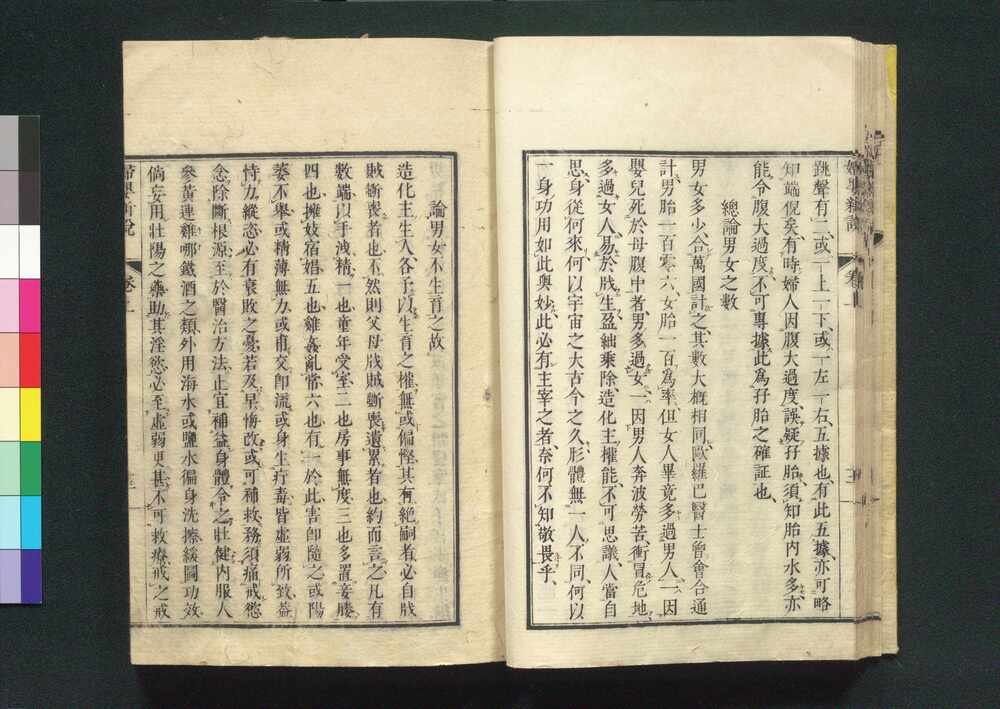 跳聲有二、或一上一下、或一左一右、五據也、有此五據、亦可略
知端倪矣、有時婦人因腹大過度、誤疑孖胎、須知胎內水多、亦
能令腹大過度、不可專據此為孖胎之確証也、
總論男女之數
男女多少、合萬國計之、其數大概相同、歐羅巴醫士曾會合通
計、男胎一百零六、女胎一百、為率、但女人畢竟多過男人、一因
嬰兒死於母腹中者、男多過女、一因男人奔波勞苦、衝冒危地、
多過女人、易於戕生、盈絀乘除、造化主權能、不可思議、人當自
思、身從何來、何以宇宙之大、古今之久、形體無一人不同、何以
一身功用、如此奧妙、此必有主宰之者、奈何不知敬畏乎、
論男女不生育之故
造化主生人、各予以生育之權、無或偏慳、其有絕嗣者、必自戕
賊斵喪者也、不然則父母戕賊斵喪遺累者也、約而言之、凡有
數端、以手洩精、一也、童年受室、二也、房事無度、三也、多置妾媵、
四也、擁妓宿娼、五也、雞姦亂常、六也、有一於此、害卽隨之、或陽
萎不舉、或精薄無力、或甫交卽流、或身生疔毒、皆虛弱所致、蓋
恃力縱慾、必有衰敗之憂、若及早悔改、或可補救、務須痛戒慾
念、除斷根源、至於醫治方法、止宜補益身體、令之壯健、內服人
參黃連雞哪鐵酒之類、外用海水或鹽水徧身洗擦、緩圖功效、
倘妄用壯陽之藥、助其淫慾、必至虛弱更甚、不可救療、戒之戒